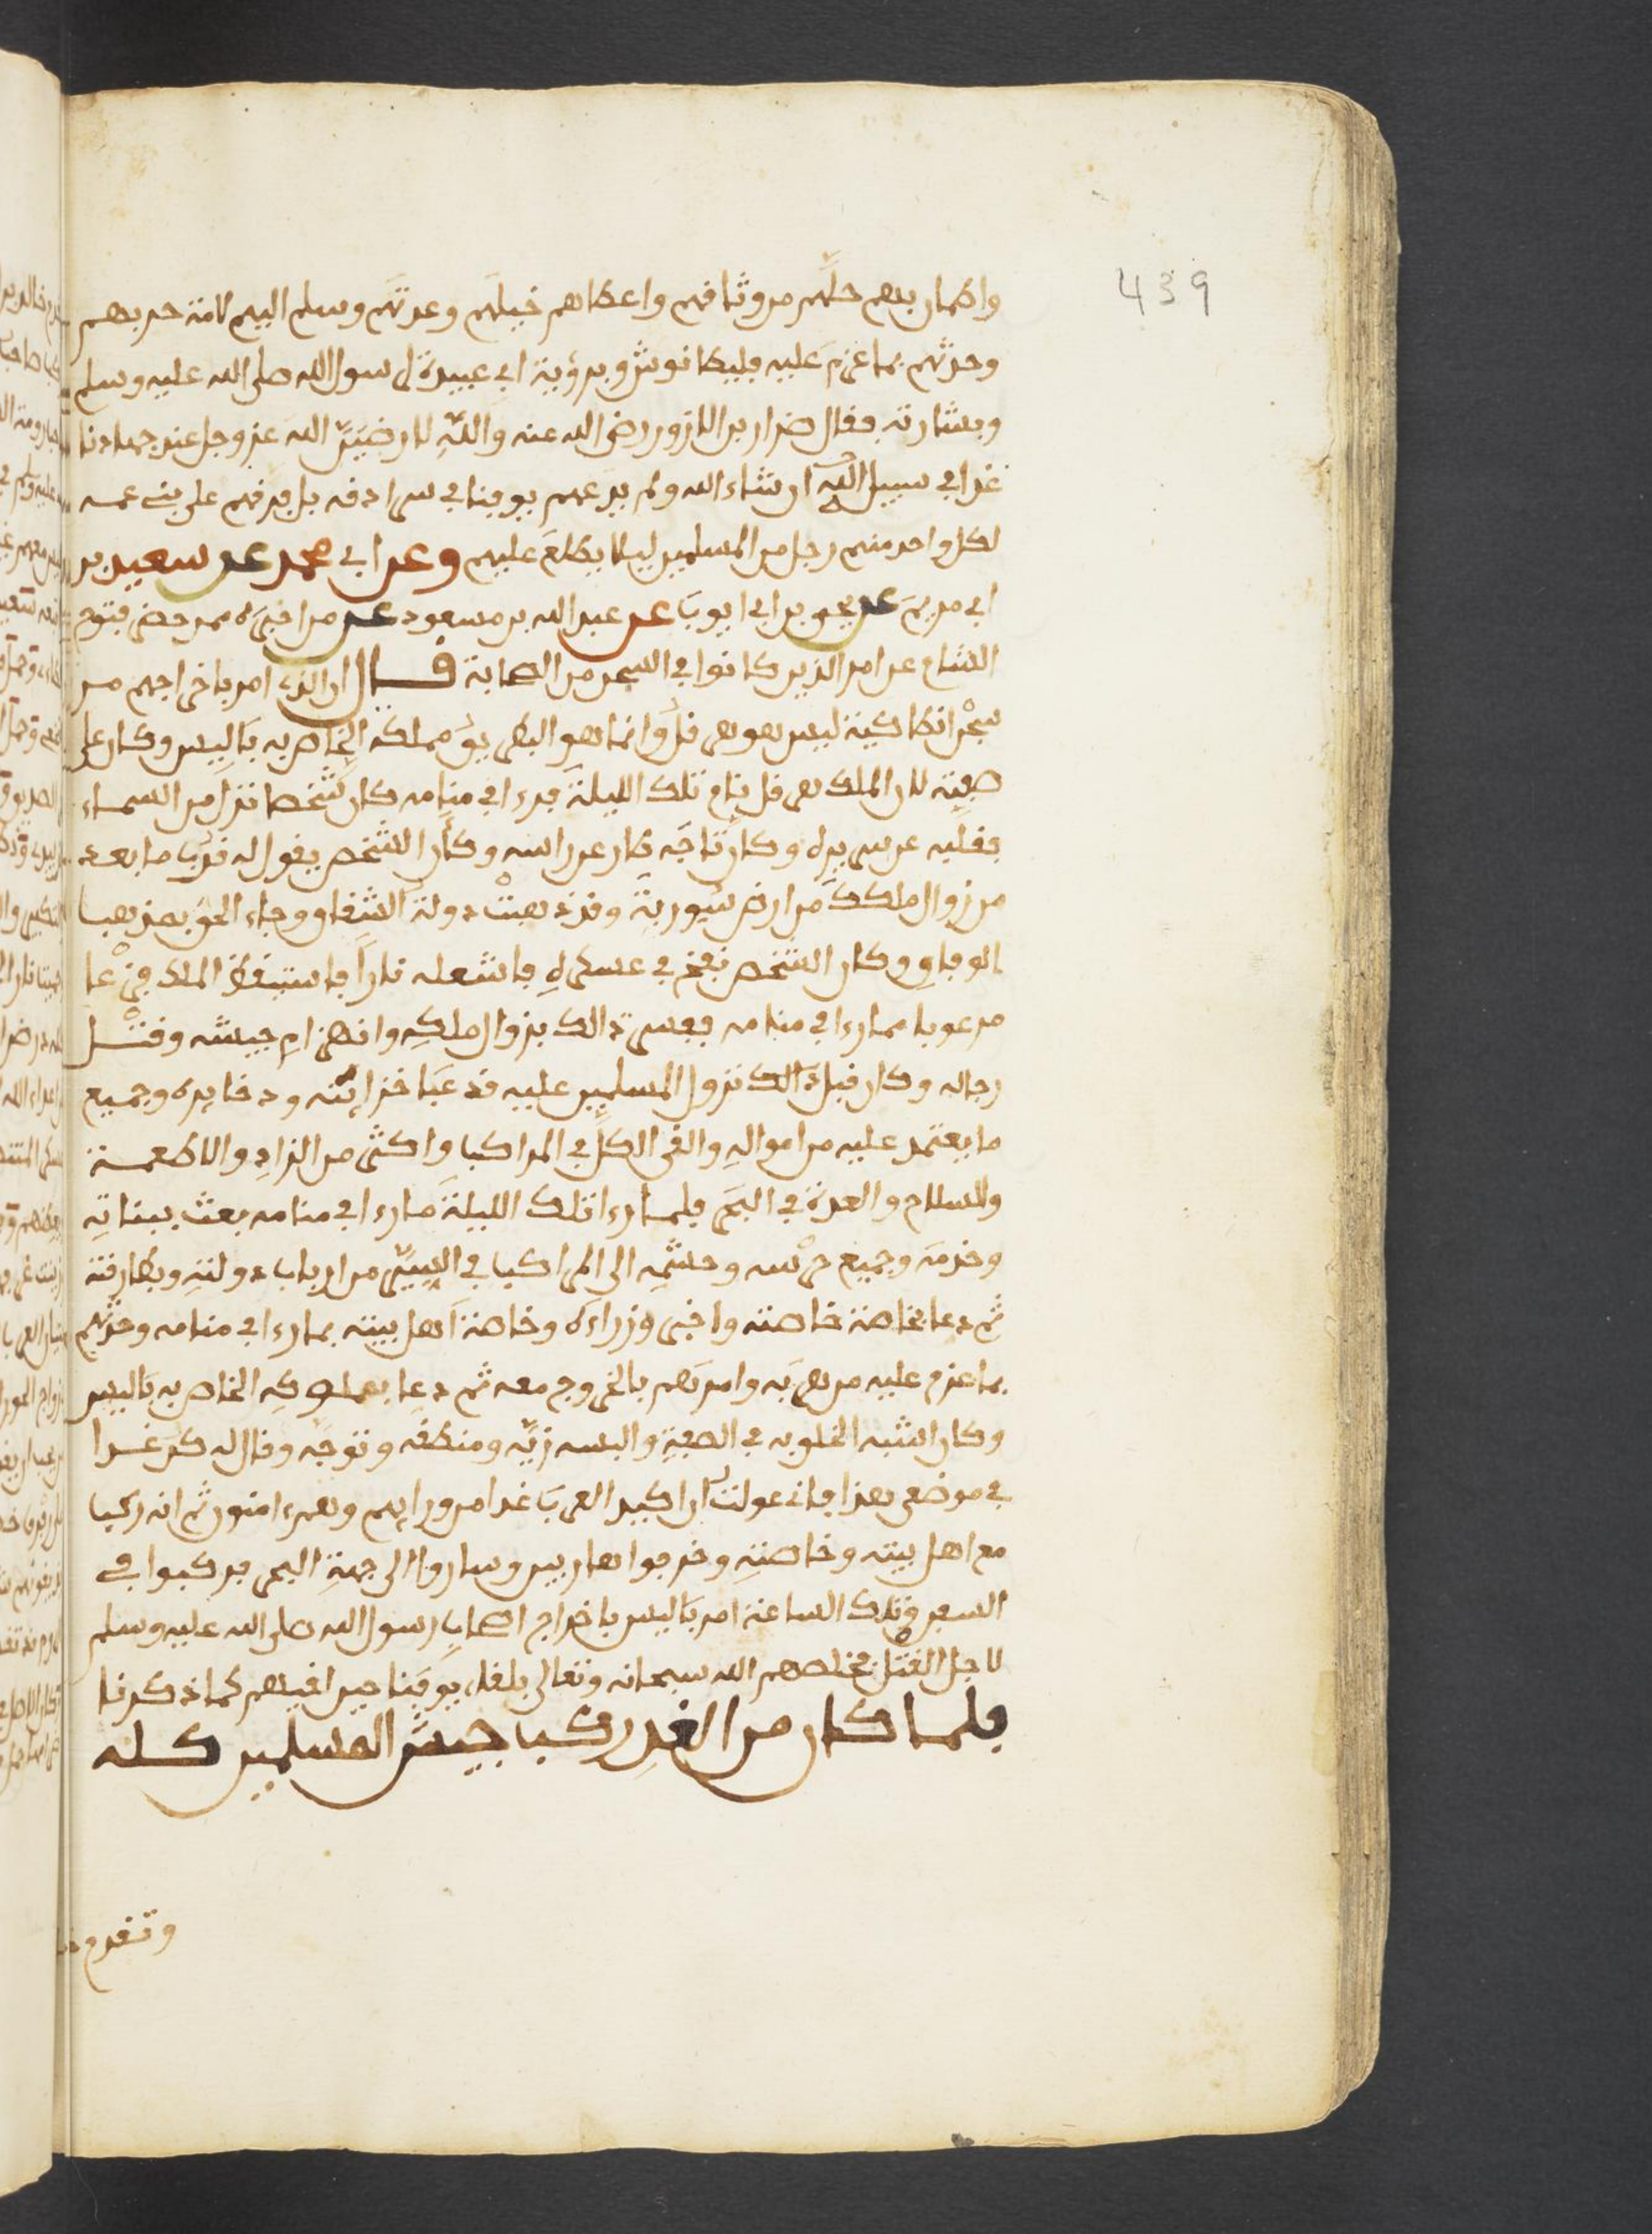 439
واطمان بهم حلهم من وثاقهم واعطاهم خيلهم وعدتهم وسلم اليهم لامة حربهم
وحدثهم بما عزم عليه فليطانوش وبرؤية ابي عبيدة لرسول الله صلى الله عليه وسلم
وبشارته فقال ضرار بن الازور رضي الله عنه والله لارضين الله عز وجل عند جهادنا
غدا في سبيل الله ان شاء الله ولم يدعهم يوقنا في سرادقه بل فرقهم على بني عمه
لكل واحد منهم رجل من المسلمين ليلا يطلع عليهم وعن ابي محمد عن سعيد بن
ابي مريم عن يحيى بن ابي ايوب عن عبد الله بن مسعود عن من اخبره ممن حضر فتوح
الشام عن امر الذين كانوا في السجن من الصحابة قال ان الذي امر باخراجهم من
سجن انطاكية ليس هو هرقل وانما هو البطريق مملكه الخاص به باليس وكان على
صفته لان الملك هرقل نام تلك الليلة فرءا في منامه كان شخصا نزل من السماء
فقلبه عن سريره وكان تاجه طار عن راسه وكان الشخص يقول له قرب ما بعد
من زوال ملكك من ارض سورية وقد ذهبت دولة الشقاق وجاء الحق بمذهب
الوفاق وكان الشخص نفخ في عسكره فاشعله نارا فاستيقظ الملك فزعا
مرعوبا مما رءا في منامه ففسر ذالك بزوال ملكه وانهزام جيشه وقتل
رجاله وكان قبل ذالك نزول المسلمين عليه قد عبا خزاينه وذخايره وجميع
ما يعتمد عليه من امواله والقى الكل في المراكب واكثر من الزاد والاطعمة
والسلاح والعدة في البحر فلما رءا تلك الليلة ما رءا في منامه بعث ببناته
وخدمه وجميع حرسه وحشمه الى المراكب في السر من ارباب دولته وبطارقته
ثم دعا بخاصة خاصته واخبر وزراءه وخاصة اهل بيته بما رءا في منامه وحدثهم
بما عزم عليه من هربه وامرهم بالخروج معه ثم دعا بمملوكه الخاص به باليس
وكان اشبه الخلق به في الصفة والبسه زيه ومنطقه وتوجه وقال له كن غدا
في موضعي هذا فاني عولت ان اكيد العرب غدا من ورايهم وهم ءامنون ثم انه ركب
مع اهل بيته وخاصته وخرجوا هاربين وساروا الى جهة البحر فركبوا في
السفن وتلك الساعة امر باليس باخراج اصحاب رسول الله صلى الله عليه وسلم
لاجل القتل فخلصهم الله سبحانه وتعالى بلقاء يوقنا حين لقيهم كما ذكرنا
فلما كان من الغد ركب جيش المسلمين كله
وتقدم